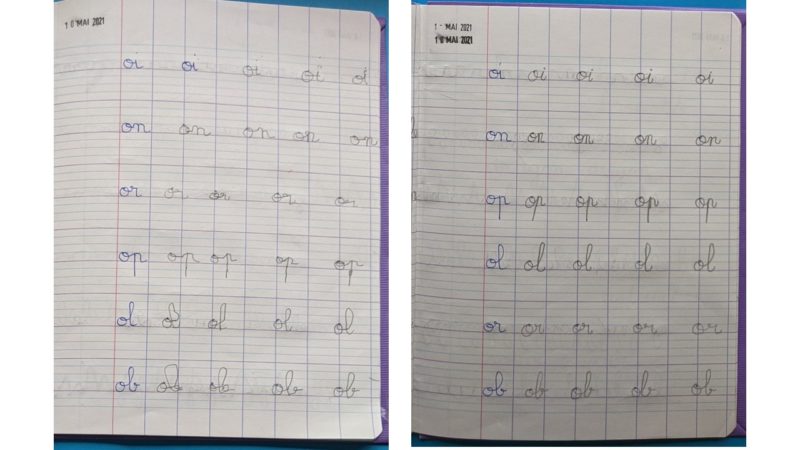 10 MAI 2021
oi oi oi oi oi
on on on on on
or or or or or
op op op op op
ol ol ol ol ol
ob ob ob ob ob
MAI 2021
10 MAI 2021
oi oi oi oi oi
on on on on on
op op op op op
ol ol ol ol ol
or or or or or
ob ob ob ob ob